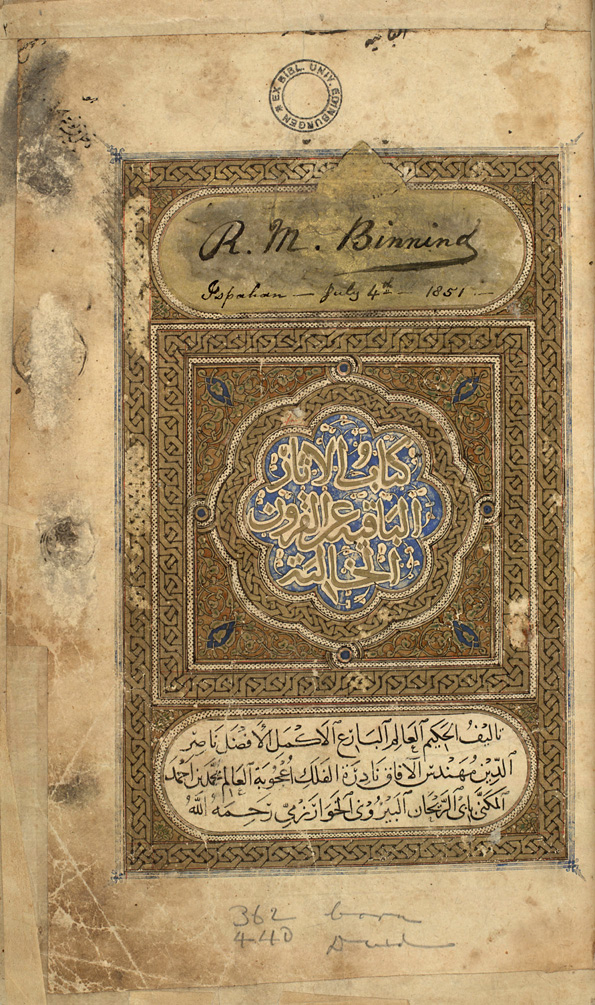 EX BIBL. UNIV. EDINBURGEN
R. M. Binning
Ispahan — July 4th — 1851 —
كتاب الاثار
الباقية عن القرون
الخالية
تاليف الحكيم العالم البارع الاكمل الافضل ناصر
الدين مهندس الافاق نادرة الفلك اعجوبة العالم محمد بن احمد
المكنى بابى الريحان البيرونى الخوارزمى رحمه الله
362 born
440 Died